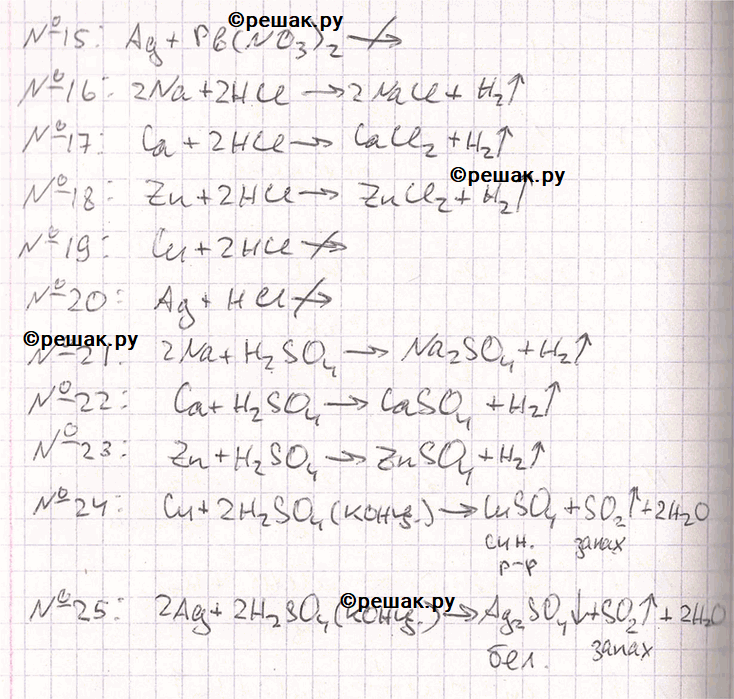 ©решак.ру
№15: Ag + Pb(NO₃)₂ ↛
№16: 2Na + 2HCl → 2NaCl + H₂↑
№17: Ca + 2HCl → CaCl₂ + H₂↑
©решак.ру
№18: Zn + 2HCl → ZnCl₂ + H₂↑
№19: Cu + 2HCl ↛
№20: Ag + HCl ↛
©решак.ру
№21: 2Na + H₂SO₄ → Na₂SO₄ + H₂↑
№22: Ca + H₂SO₄ → CaSO₄ + H₂↑
№23: Zn + H₂SO₄ → ZnSO₄ + H₂↑
№24: Cu + 2H₂SO₄ (конц.) → CuSO₄ + SO₂↑ + 2H₂O
син. запах
р-р
©решак.ру
№25: 2Ag + 2H₂SO₄ (конц.) → Ag₂SO₄↓ + SO₂↑ + 2H₂O
бел. запах